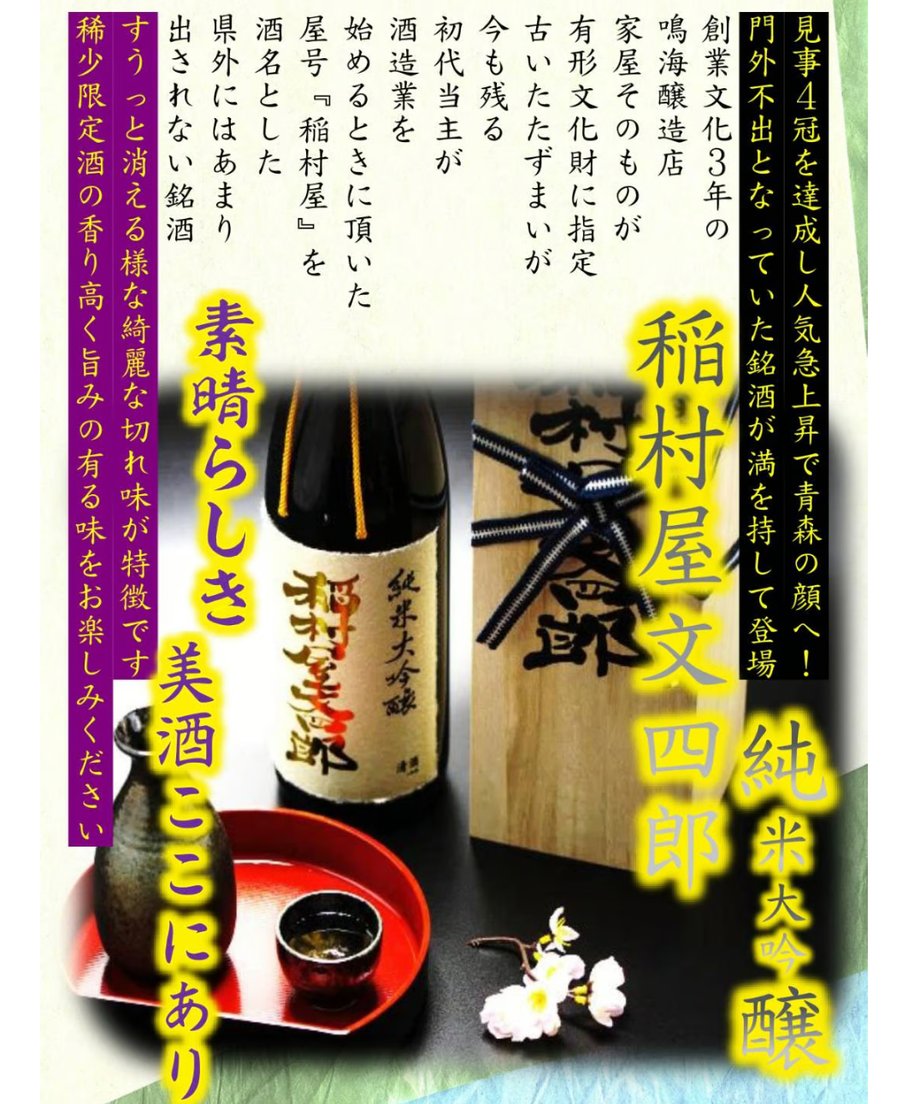 見事4冠を達成し人気急上昇で青森の顔へ!
門外不出となっていた銘酒が満を持して登場
創業文化3年の
鳴海醸造店
家屋そのものが
有形文化財に指定
古いたたずまいが
今も残る
初代当主が
酒造業を
始めるときに頂いた
屋号『稲村屋』を
酒名とした
県外にはあまり
出されない銘酒
すうっと消える様な綺麗な切れ味が特徴です
稀少限定酒の香り高く旨みの有る味をお楽しみください
稲村屋文四郎
純米大吟醸
素晴らしき
美酒ここにあり
純米大吟醸
稲村屋文四郎
清酒
村屋文四郎